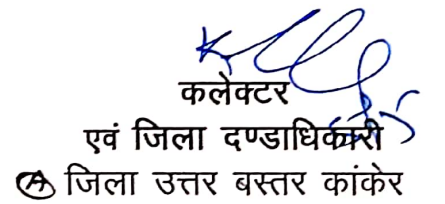 कलेक्टर
एवं जिला दण्डाधिकारी
A जिला उत्तर बस्तर कांकेर